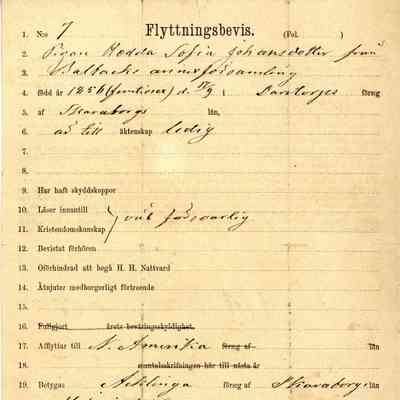 1. N:o 7 Flyttningsbevis. (Fol. )
2. Pigan Hedda Sofia Johansdotter från
3. Baltacks annexförsamling
4. född år 1856 (femtiosex) d. 11/9 i Dam förs:g
5. af Skaraborgs län,
6. äktenskap ledig
7.
8.
9. Har haft skyddskoppor
10. Läser innantill
11. Kristendomskunskap försvarlig
12. Bevistat förhören
13. Oförhindrad att begå H. H. Nattvard
14. Åtnjuter medborgerligt förtroende
15.
16. Fullgjort årets beväringsskyldighet.
17. Afflyttar till N. Amerika förs:g af län
18. mantalsskrifningen här till nästa år
19. Betygas Acklinga förs:g af Skaraborgs län